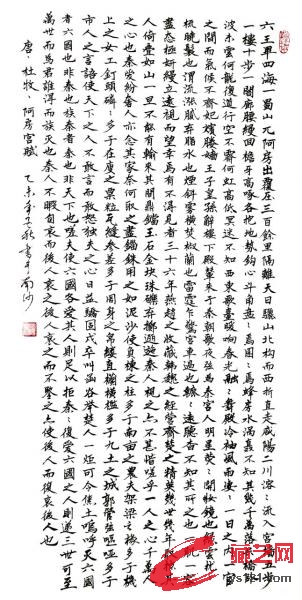 六王畢四海一蜀山兀阿房出覆壓三百餘里隔離天日驪山北构而西折直走咸陽二川溶溶流入宮牆五步
一樓十步一閣廊腰縵回檐牙高啄各抱地勢鈎心斗角盤盤焉囷囷焉蜂房水渦矗不知其幾千萬落長橋卧
波未雲何龍復道行空不霽何虹高低冥迷不知西東歌臺暖響春光融融舞殿冷袖風雨凄凄一日之内一宮
之間而氣候不齊妃嬪媵嬙王子皇孫辭樓下殿輦來于秦朝歌夜弦為秦宮人明星熒熒開妝鏡也綠雲擾
擾梳曉鬟也渭流漲膩棄脂水也煙斜霧橫焚椒蘭也雷霆乍驚宮車過也轆轆遠聽杳不知其所之也一肌一容
盡態極妍縵立遠視而望幸焉有不得見者三十六年燕趙之收藏韓魏之經營齊楚之精英幾世幾年剽掠其
人倚疊如山一旦不能有輸來其間鼎鐺玉石金塊珠礫棄擲邐迤秦人視之亦不甚惜嗟乎一人之心千萬人
之心也秦愛紛奢人亦念其家奈何取之盡錙銖用之如泥沙使負棟之柱多于南畝之農夫架梁之椽多于機
上之女工釘頭磷磷多于在庾之粟粒瓦縫參差多于周身之帛縷直欄橫檻多于九土之城郭管弦嘔啞多于
市人之言語使天下之人不敢言而敢怒獨夫之心日益驕固戍卒叫函谷舉楚人一炬可憐焦土嗚呼滅六國
者六國也非秦也族秦者秦也非天下也嗟夫使六國各愛其人則足以拒秦秦復愛六國之人則遞三世可至
萬世而為君誰得而族滅也秦人不暇自哀而後人哀之後人哀之而不鑒之亦使後人而復哀後人也
唐杜牧阿房宮賦 乙未年之秋書于南沙
藏艺网